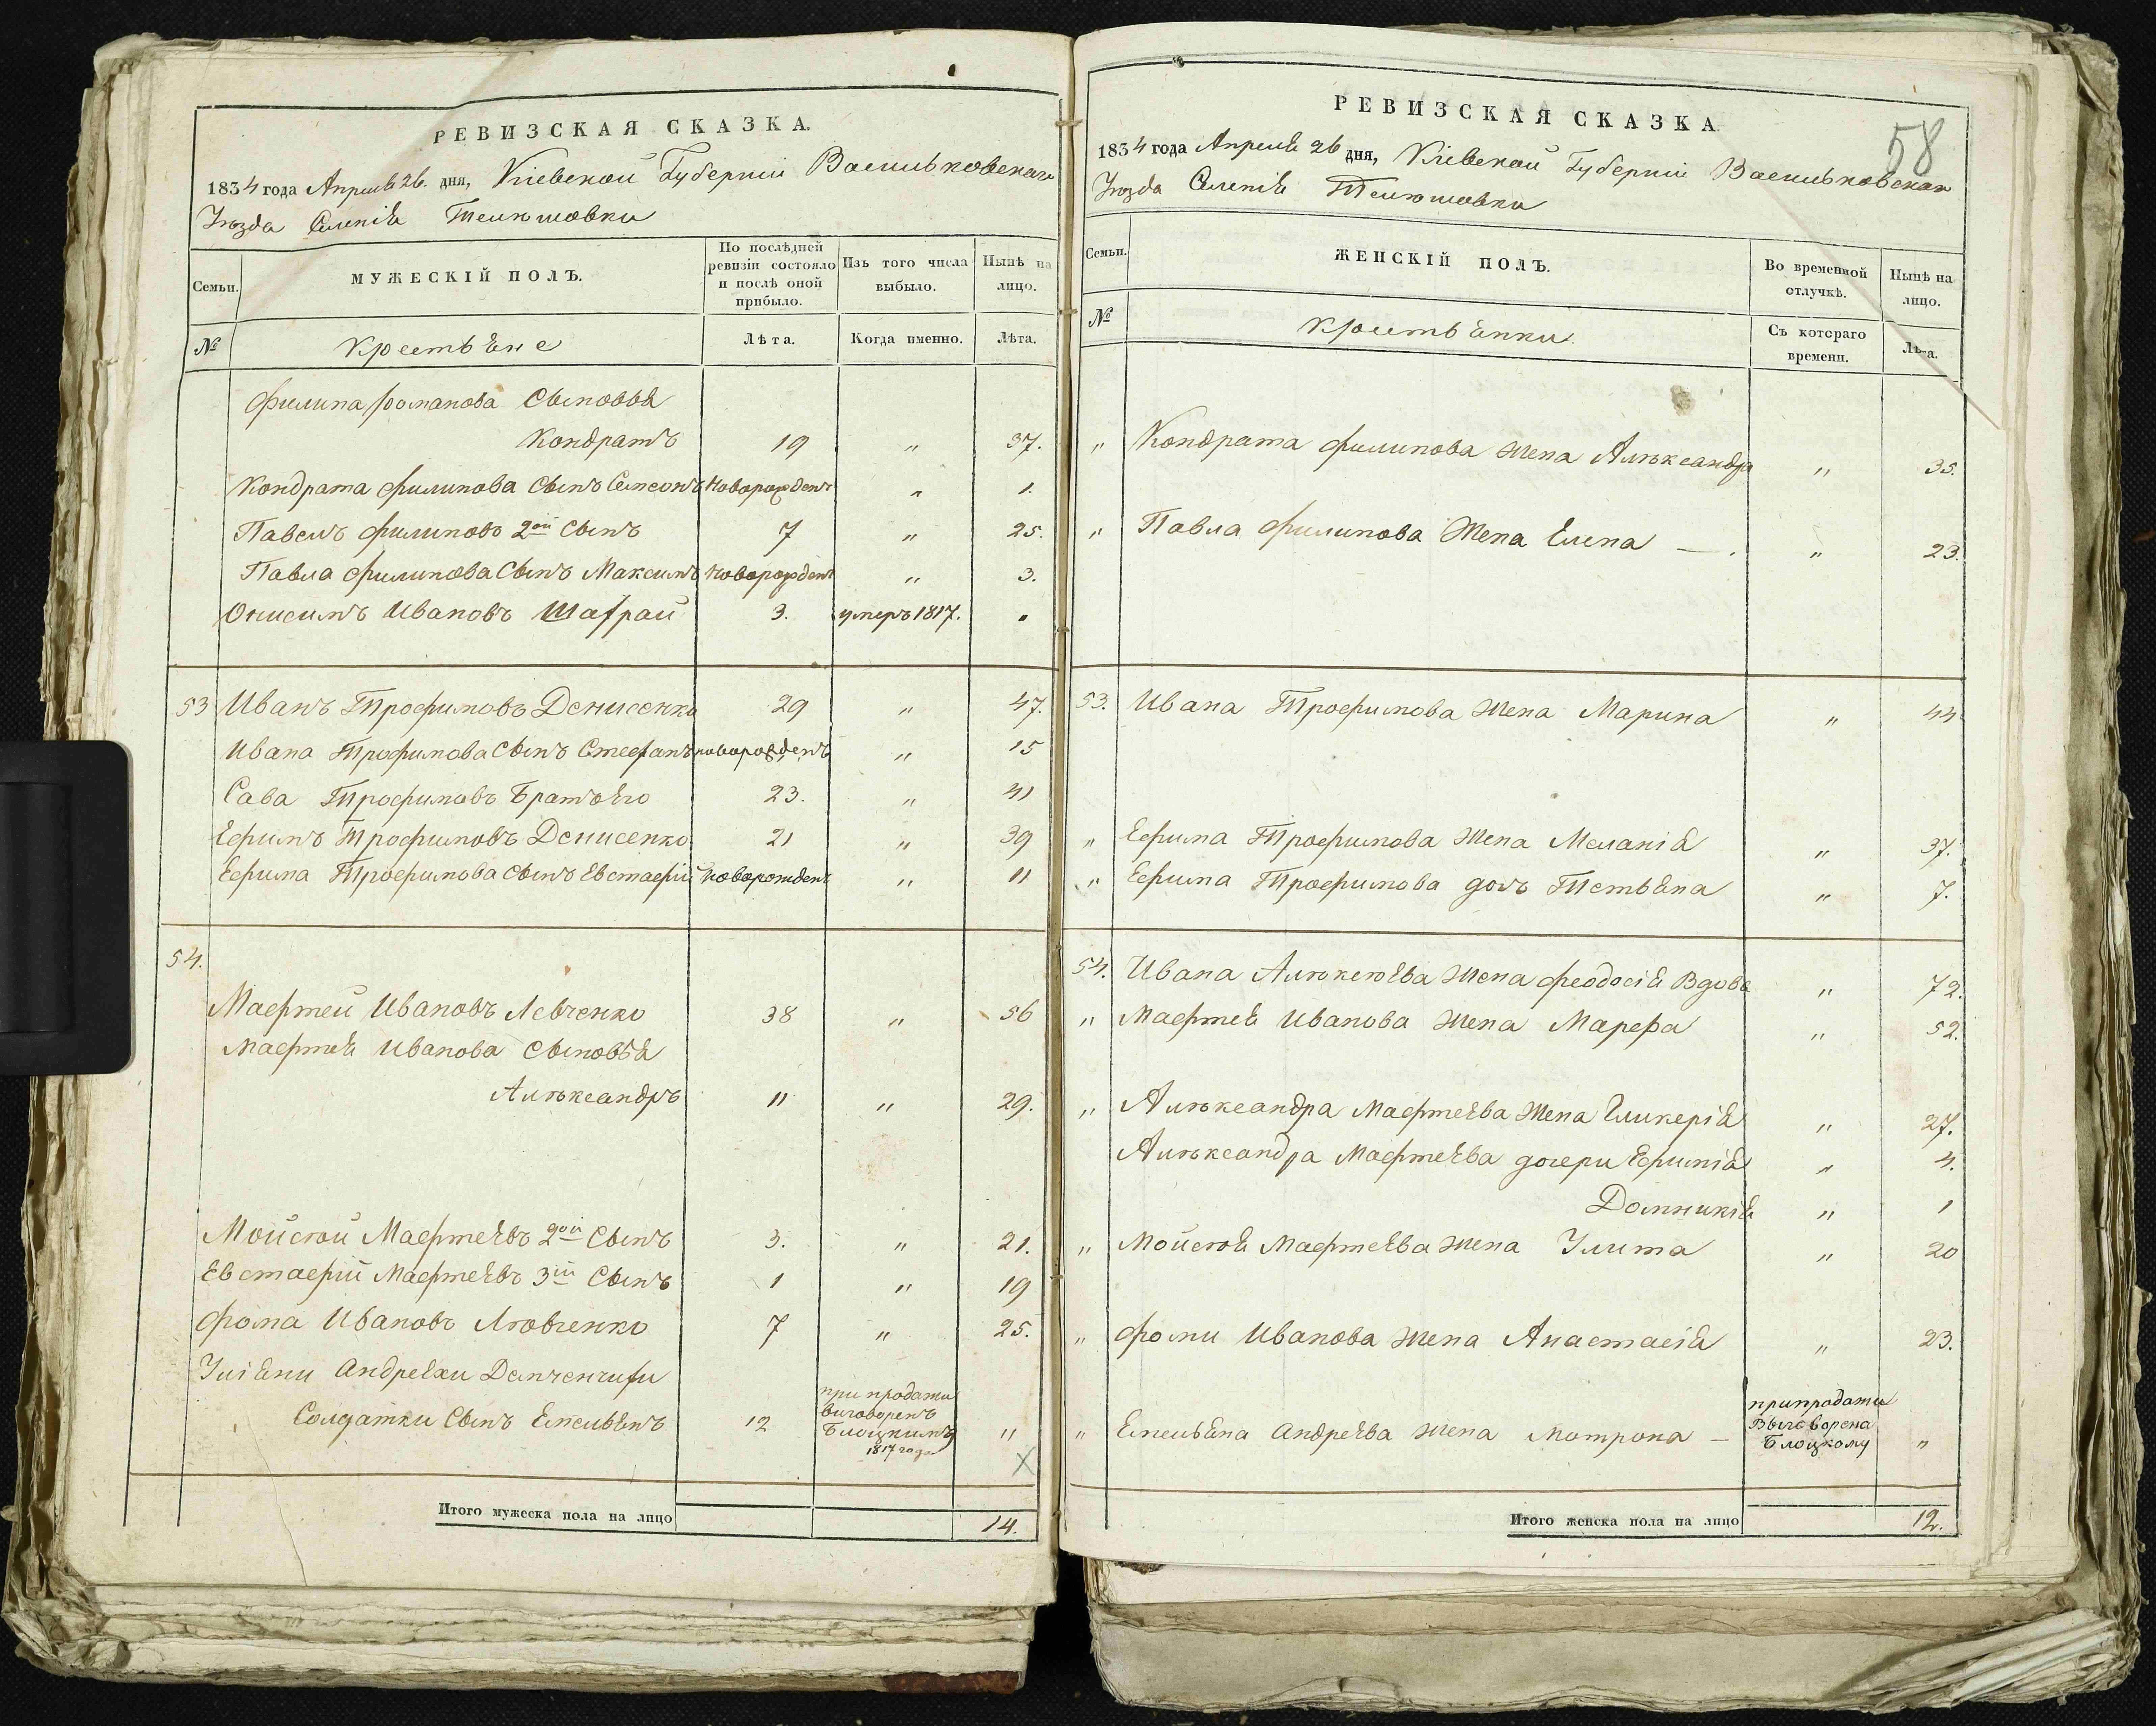 РЕВИЗСКАЯ СКАЗКА.
1834 года Апреля 26. дня, Кіевской Губерніи Васильковскаго
Уѣзда Селенія Телешовки
Семьи.
МУЖЕСКІЙ ПОЛЪ.
По послѣдней ревизіи состояло и послѣ оной прибыло.
Изъ того числа выбыло.
Нынѣ на лицо.
№
Крестьяне
Лѣта.
Когда именно.
Лѣта.
Филипа Романова Сыновья
Кондратъ 19 " 37.
Кондрата Филипова Сынъ Семсонъ Новорожденъ " 1.
Павелъ Филиповъ 2ой Сынъ 7 " 25.
Павла Филипова Сынъ Максимъ Новорожденъ " 3.
Онисимъ Ивановъ Шаграй 3. умеръ 1817. "
53 Иванъ Трофимовъ Денисенко 29 " 47.
Ивана Трофимова Сынъ Стефанъ новорожденъ " 15
Сава Трофимовъ Братъ Его 23. " 41
Ефимъ Трофимовъ Денисенко 21 " 39
Ефима Трофимова Сынъ Евстафій Новорожденъ " 11
54.
Мафтей Ивановъ Левченко 38 " 56
Мафтея Иванова Сыновья
Алѣксандръ 11 " 29.
Мойсѣй Мафтеевъ 2ой Сынъ 3. " 21.
Евстафій Мафтеевъ 3ій Сынъ 1 " 19
Фома Ивановъ Лѣвченко 7 " 25.
Солдатки Сынъ Емельянъ 12 при продажи виговоренъ Блоцкимъ 1817 года "
Итого мужеска пола на лицо 14.
РЕВИЗСКАЯ СКАЗКА.
58
1834 года Апреля 26 дня, Кіевской Губерніи Васильковскаго
Уѣзда Селенія Телешовки
Семьи.
ЖЕНСКІЙ ПОЛЪ.
Во временной отлучкѣ.
Нынѣ на лицо.
№
Крестьянки.
Съ котораго времени.
Лѣта.
" Кондрата Филипова Жена Алѣксандра " 35.
" Павла Филипова Жена Елена " 23.
53. Ивана Трофимова Жена Марина " 44
" Ефима Трофимова Жена Меланія " 37.
" Ефима Трофимова дочь Тетьяна " 7.
54. Ивана Алѣксѣева Жена Феодосія Вдова " 72.
" Мафтея Иванова Жена Марфа " 52.
" Алѣксандра Мафтеева Жена Гликерія " 27.
Алѣксандра Мафтеева дочери Ефимія " 4.
Домникія " 1
" Мойсѣя Мафтеева Жена Улита " 20
" Фоми Иванова Жена Анастасія " 23.
" Емельяна Андреева Жена Мотрона — при продажи Выговорена Блоцкому "
Итого женска пола на лицо 12.